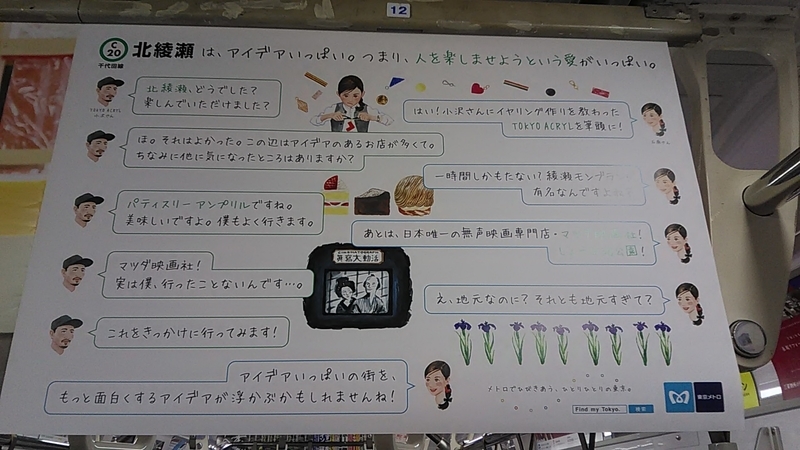 12
C
20
千代田線
北綾瀬は、アイデアいっぱい。つまり、人を楽しませようという愛がいっぱい。
北綾瀬、どうでした?
楽しんでいただけました?
TOKYO ACRYL
小沢さん
はい!小沢さんにイヤリング作りを教わった
TOKYO ACRYLを筆頭に!
ほ。それはよかった。この辺はアイデアのあるお店が多くて。
ちなみに他に気になったところはありますか?
一時間しかもたない?綾瀬モンブラン
有名なんですよね?
パティスリーアンプリルですね。
美味しいですよ。僕もよく行きます。
あとは、日本唯一の無声映画専門店・マ
マツダ映画社!
実は僕、行ったことないんです…。
え、地元なのに?それとも地元すぎて?
これをきっかけに行ってみます!
アイデアいっぱいの街を、
もっと面白くするアイデアが浮かぶかもしれませんね!
メトロでひびきあう、ひとりひとりの東京。
Find my Tokyo.
検索
東京メトロ